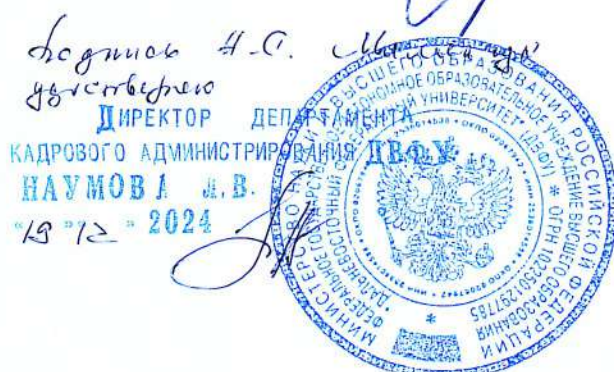 Подпись Н.С.
удостоверяю
ДИРЕКТОР ДЕПАРТАМЕНТА
КАДРОВОГО АДМИНИСТРИРОВАНИЯ ДВФУ
НАУМОВА Л.В.
"19" 12 2024
МИНИСТЕРСТВО НАУКИ И ВЫСШЕГО ОБРАЗОВАНИЯ РОССИЙСКОЙ ФЕДЕРАЦИИ
ФЕДЕРАЛЬНОЕ ГОСУДАРСТВЕННОЕ АВТОНОМНОЕ ОБРАЗОВАТЕЛЬНОЕ УЧРЕЖДЕНИЕ ВЫСШЕГО ОБРАЗОВАНИЯ
"ДАЛЬНЕВОСТОЧНЫЙ ФЕДЕРАЛЬНЫЙ УНИВЕРСИТЕТ" (ДВФУ) * ОГРН 1022501297785